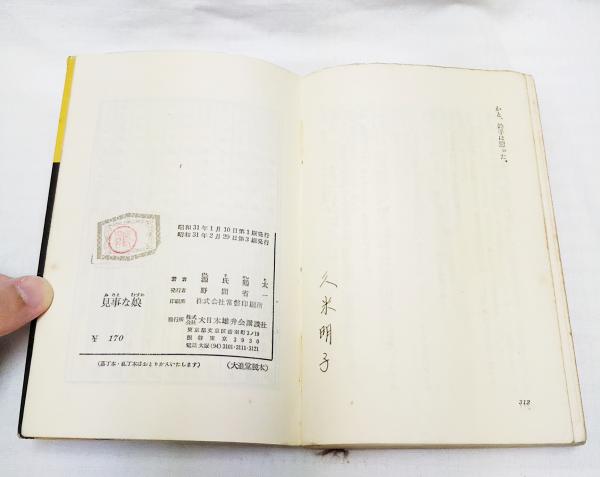 かと、鈴子は思った。
久米明子
312
昭和31年1月10日第1刷発行
昭和31年2月29日第3刷発行
著者 源氏鶏太
発行者 野間省一
印刷所 株式会社常磐印刷所
発行所 株式会社 大日本雄弁会講談社
東京都文京区音羽町3/19
振替東京3930
電話大塚(94)3101-3111-3121
みごと むすめ
見事な娘
¥ 170
(落丁本・乱丁本はおとりかえいたします)
(大進堂製本)